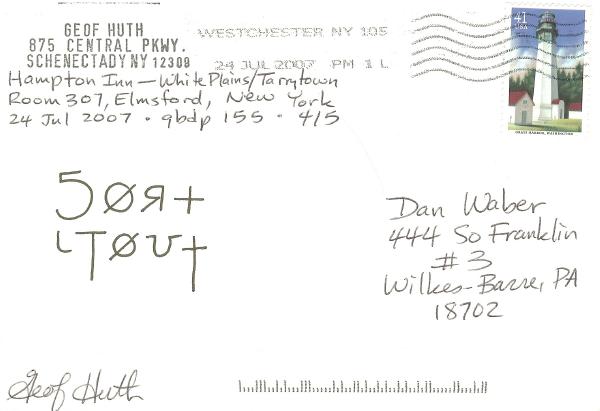 GEOF HUTH
875 CENTRAL PKWY.
SCHENECTADY NY 12309
WESTCHESTER NY 105
24 JUL 2007 PM 1 L
41
USA
GRAYS HARBOR, WASHINGTON
Hampton Inn — White Plains/Tarrytown
Room 307, Elmsford, New York
24 Jul 2007 · qbdp 155 · 4/5
5ØЯ+
ιTØʊ†
Dan Waber
444 So Franklin
#3
Wilkes-Barre, PA
18702
Geof Huth